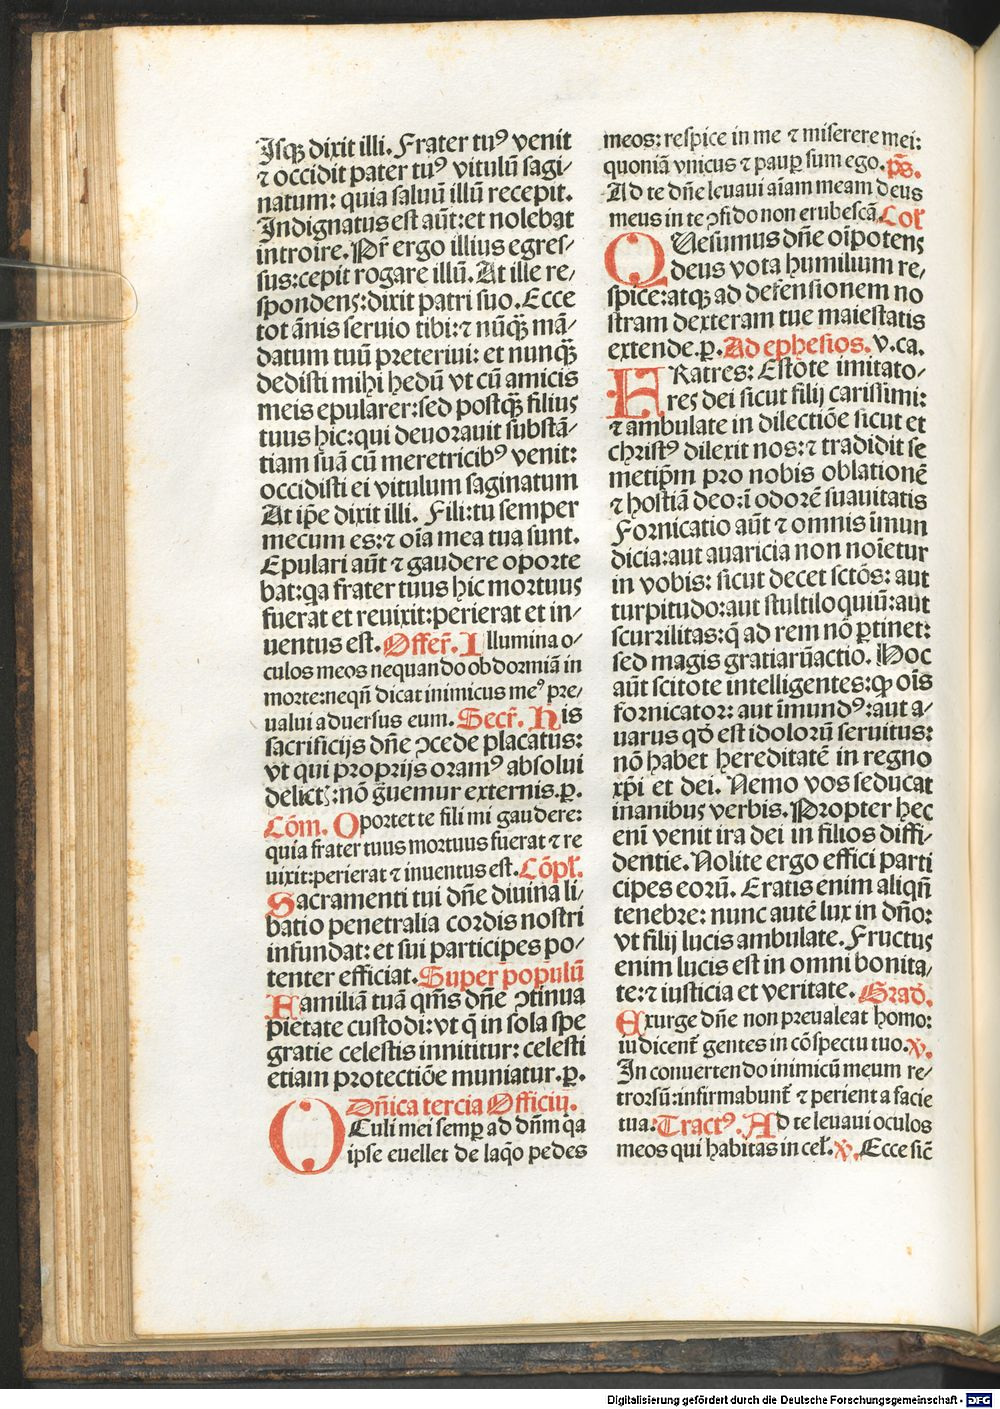 Isqꝫ dixit illi. Frater tuꝰ venit
⁊ occidit pater tuꝰ vitulū sagi⸗
natum: quia saluū illū recepit.
Indignatus est aūt: et nolebat
introire. Pr̄ ergo illius egres⸗
sus: cepit rogare illū. At ille re⸗
spondens: dixit patri suo. Ecce
tot ānis seruio tibi: ⁊ nūqꝫ mā⸗
datum tuū preteriui: et nunqꝫ̄
dedisti mihi hedū vt cū amicis
meis epularer: sed postqꝫ̄ filius
tuus hic: qui deuorauit substā⸗
tiam suā cū meretricibꝰ venit:
occidisti ei vitulum saginatum
At ip̄e dixit illi. Fili: tu semper
mecum es: ⁊ oīa mea tua sunt.
Epulari aūt ⁊ gaudere oporte
bat: qa frater tuus hic mortuus
fuerat et reuixit: perierat et in⸗
uentus est. Offer̄. Illumina o⸗
culos meos nequando obdormiā in
morte: neqn̄ dicat inimicus meꝰ pre⸗
ualui aduersus eum. Secr̄. His
sacrificijs dn̄e ꝯcede placatus:
vt qui proprijs oramꝰ absolui
delictꝭ: nō grauemur externis. p̲.
Cōm. Oportet te fili mi gaudere:
quia frater tuus mortuus fuerat ⁊ re
uixit: perierat ⁊ inuentus est. Cōpl̄.
Sacramenti tui dn̄e diuina li⸗
batio penetralia cordis nostri
infundat: et sui participes po⸗
tenter efficiat. Super populū
Familiā tuā qm̄s dn̄e ꝯtinua
pietate custodi: vt q̄ in sola spe
gratie celestis innititur: celesti
etiam protectiōe muniatur. p̲.
Dn̄ica tercia Officiū.
OCuli mei semꝑ ad dn̄m qa
ipse euellet de laq̊o pedes
meos: respice in me ⁊ miserere mei:
quoniā vnicus ⁊ pauꝑ sum ego. ps̄.
Ad te dn̄e leuaui aīam meam deus
meus in te ꝯfido non erubescā Col̄
QUesumus dn̄e oīpotens
deus vota humilium re⸗
spice: atqꝫ ad defensionem no
stram dexteram tue maiestatis
extende. p̲. Ad ephesios. v. ca.
FRatres: Estote imitato⸗
res dei sicut filij carissimi:
⁊ ambulate in dilectiōe sicut et
christꝰ dilexit nos: ⁊ tradidit se
metip̄m pro nobis oblationē
⁊ hostiā deo: ī odorē suauitatis
Fornicatio aūt ⁊ omnis īmun
dicia: aut auaricia non noīetur
in vobis: sicut decet sctōs: aut
turpitudo: aut stultiloquiū: aut
scurrilitas: q̄ ad rem nō ꝑtinet:
sed magis gratiarūactio. Hoc
aūt scitote intelligentes: ꝙ oīs
fornicator: aut īmundꝰ: aut a⸗
uarus qd̄ est idolorū seruitus:
nō habet hereditatē in regno
xp̄i et dei. Nemo vos seducat
inanibus verbis. Propter hec
enī venit ira dei in filios diffi⸗
dentie. Nolite ergo effici parti
cipes eorū. Eratis enim aliqn̄
tenebre: nunc autē lux in dn̄o:
vt filij lucis ambulate. Fructus
enim lucis est in omni bonita⸗
te: ⁊ iusticia et veritate. Grad̄.
Exurge dn̄e non preualeat homo:
iudicent̄ gentes in cōspectu tuo. ℣.
In conuertendo inimicū meum re⸗
trorsū: infirmabunt̄ ⁊ perient a facie
tua: Tractꝰ. Ad te leuaui oculos
meos qui habitas in cel̄. ℣. Ecce sic̄
Digitalisierung gefördert durch die Deutsche Forschungsgemeinschaft - DFG